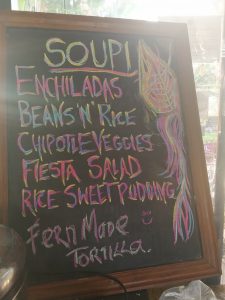 SOUP!
ENCHILADAS
BEANS 'N' RICE
CHIPOTLE VEGGIES
FIESTA SALAD
RICE SWEET PUDDING
Fern Made
TORTILLA.